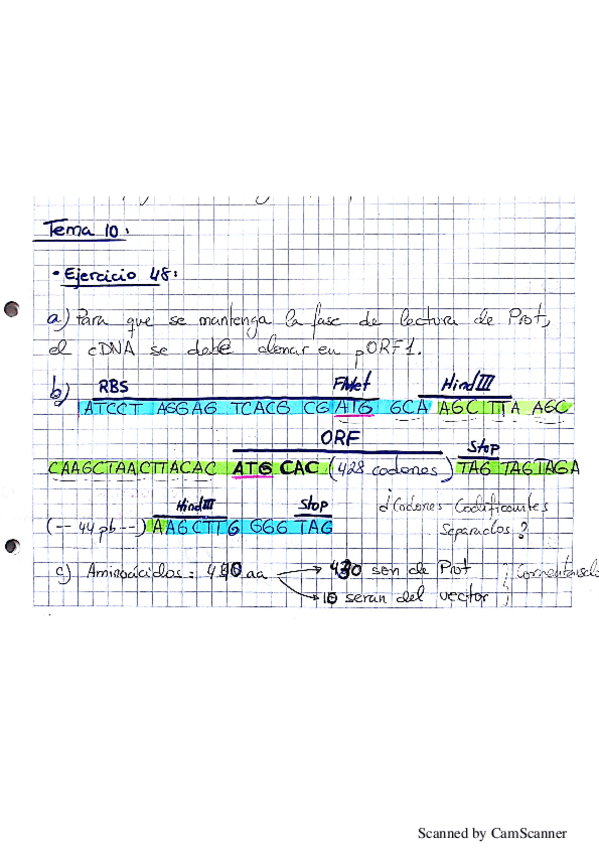 Tema 10:
• Ejercicio 48:
a) Para que se mantenga la fase de lectura de Prot,
el cDNA se debe clonar en pORF1.
RBS FMet HindIII
b) ATCCT AGGAG TCACG CG ATG GCA AGCTTTA AGC
ORF Stop
CAAGCTAACTTACAC ATG CAC (428 codones) TAG TAGTAGA
HindIII Stop ¿Codones Codificantes
(-- 44 pb --) AAGCTTG GGG TAG Separados?
c) Aminoácidos: 440 aa → 430 son de Prot
→ 10 seran del vector
Scanned by CamScanner